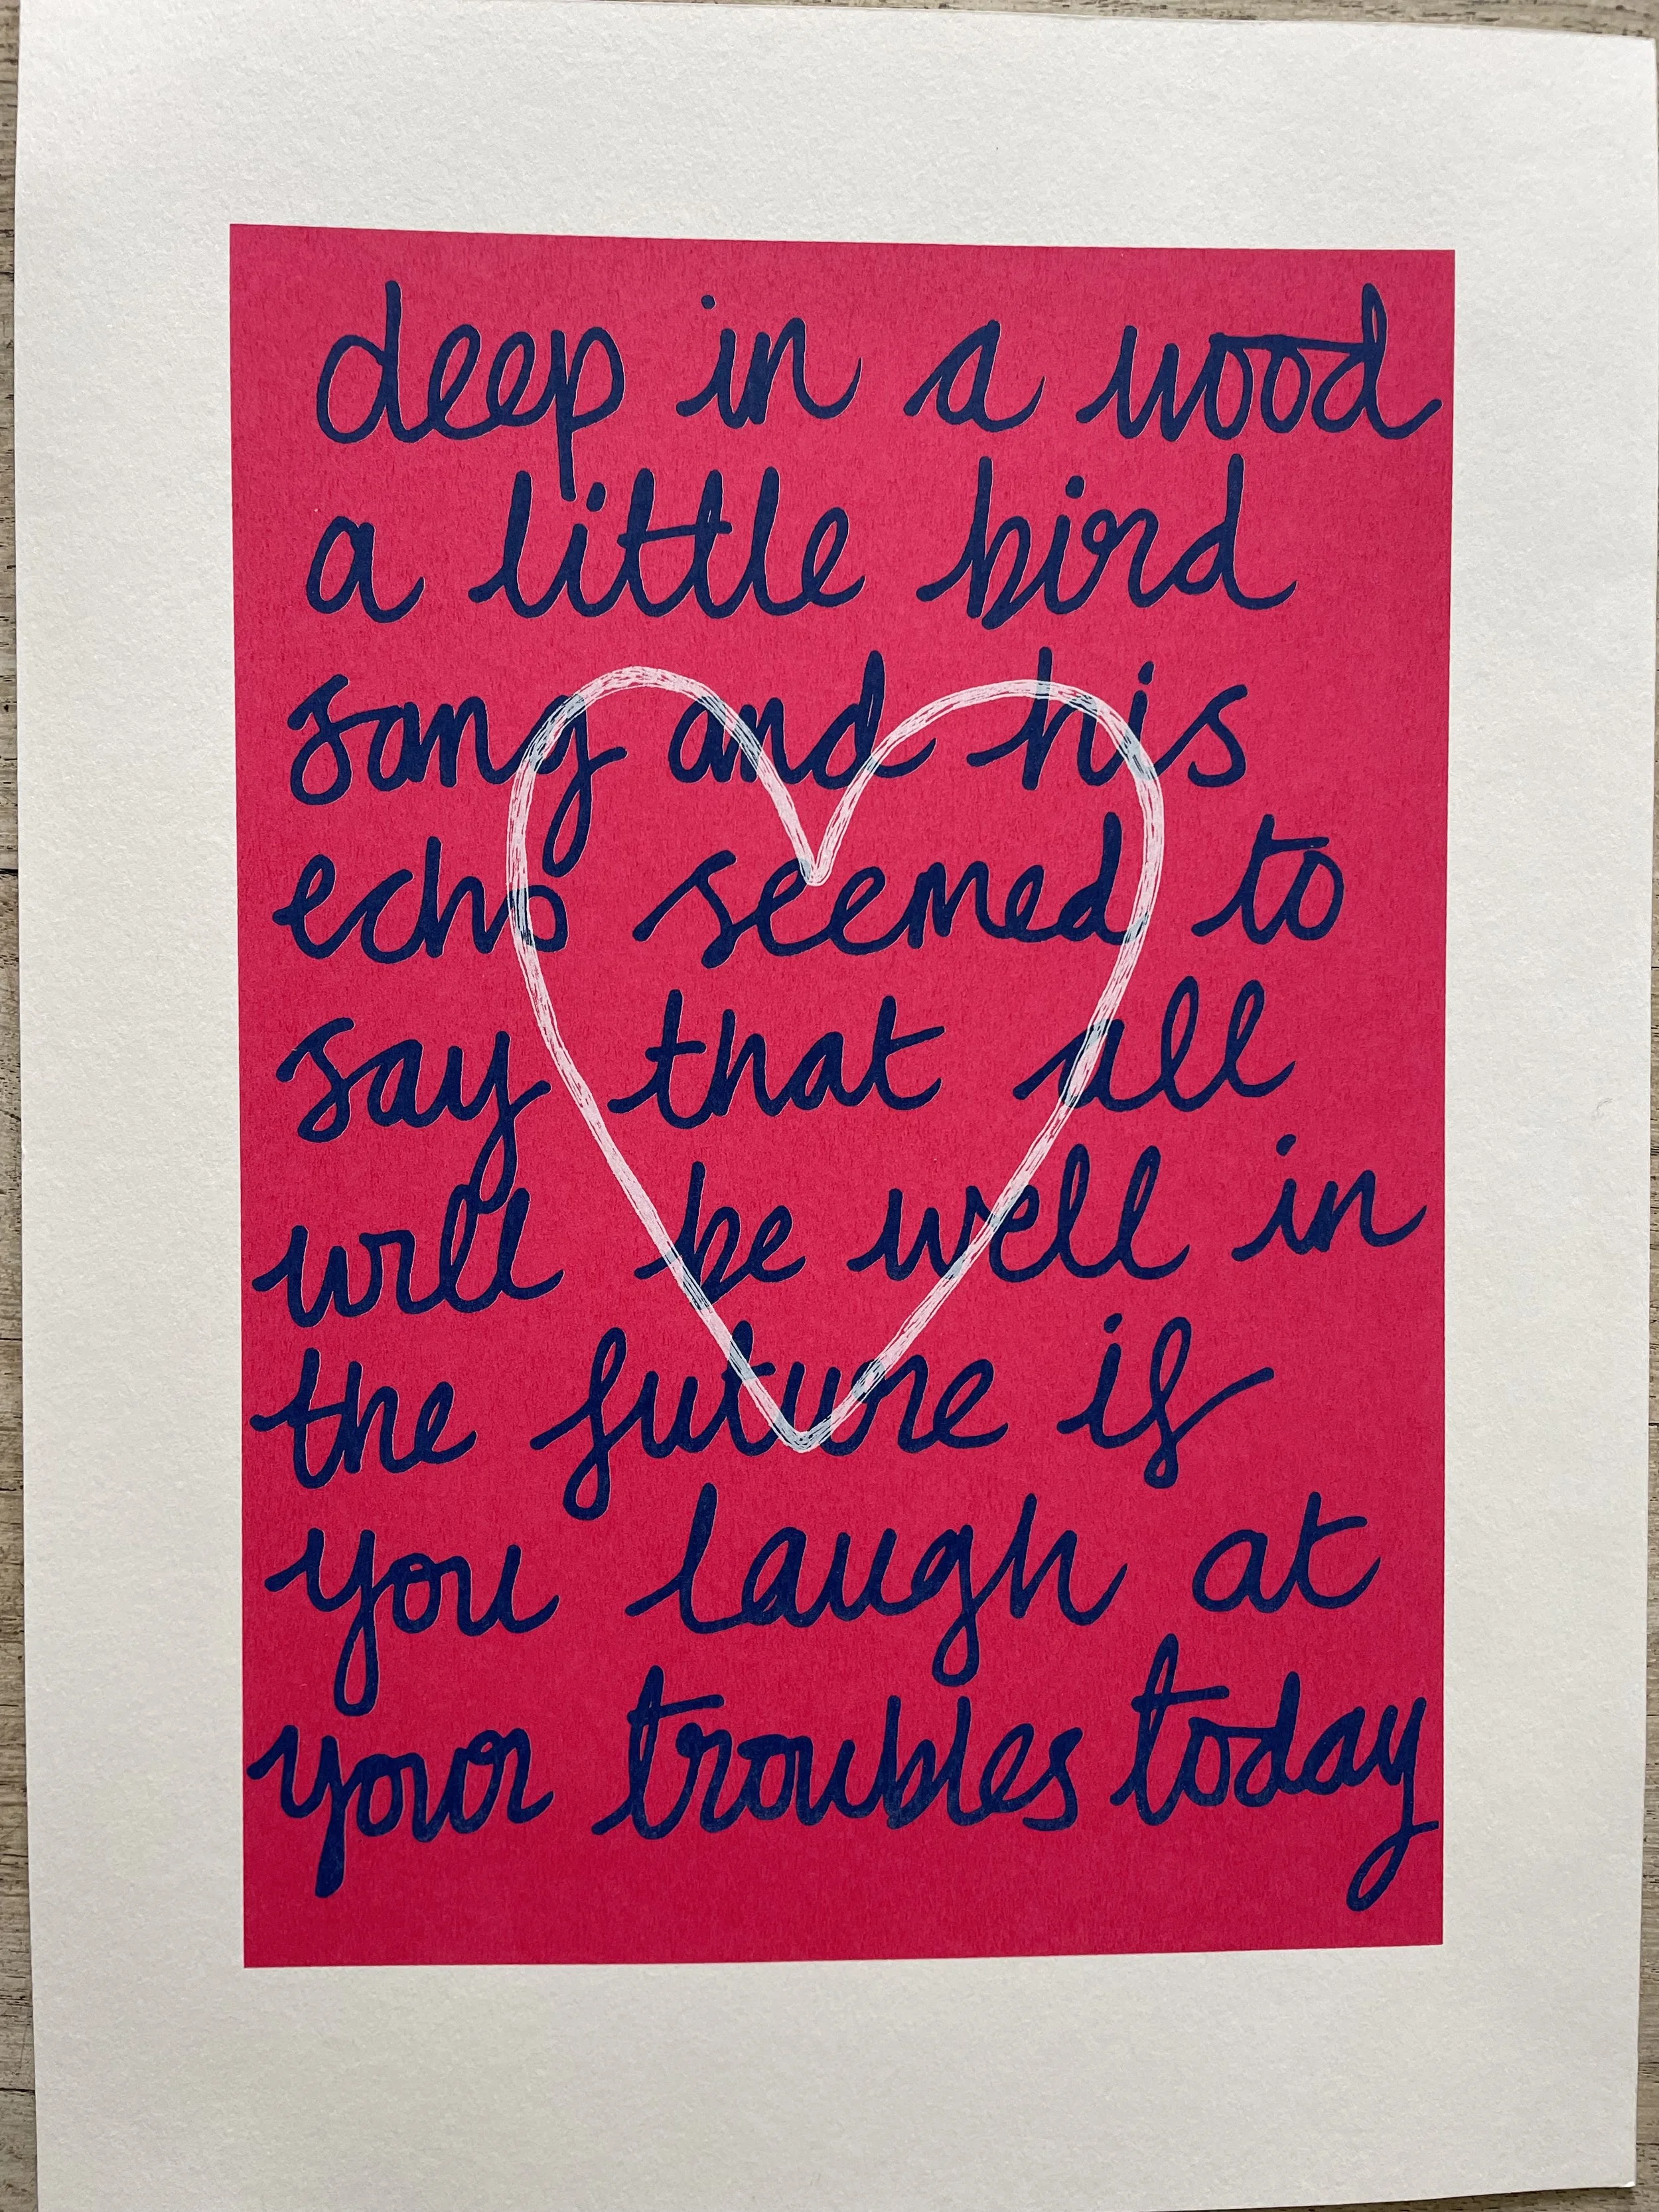 deep in a wood
a little bird
sang and his
echo seemed to
say that all
will be well in
the future if
you laugh at
your troubles today